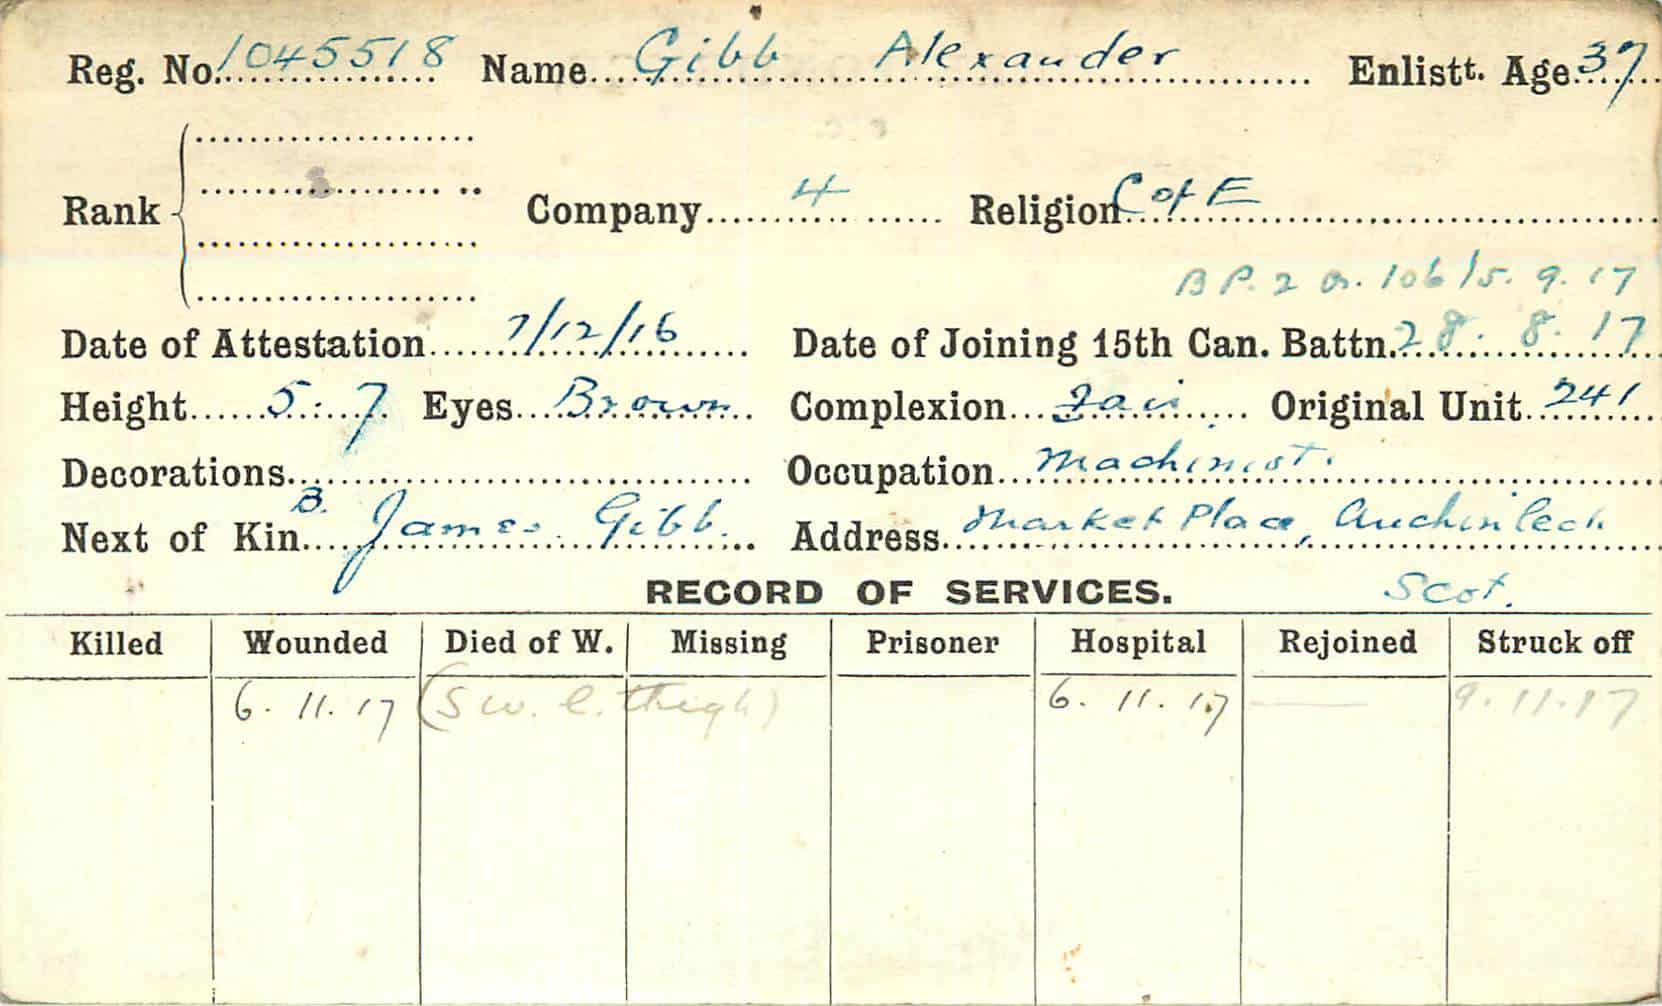 Reg. No. 1045518 Name Gibb Alexander Enlistt. Age 37
Rank Company 4 Religion C of E
B P. 2 O. 106 15. 9. 17
Date of Attestation 7/12/16 Date of Joining 15th Can. Battn. 28. 8. 17
Height 5. 7 Eyes Brown Complexion Fair Original Unit 241
Decorations Occupation Machinist.
B.
Next of Kin James Gibb. Address Market Place, Auchinleck
RECORD OF SERVICES. Scot.
Killed Wounded Died of W. Missing Prisoner Hospital Rejoined Struck off
6. 11. 17 (S w. l. thigh) 6. 11. 17 — 9. 11. 17